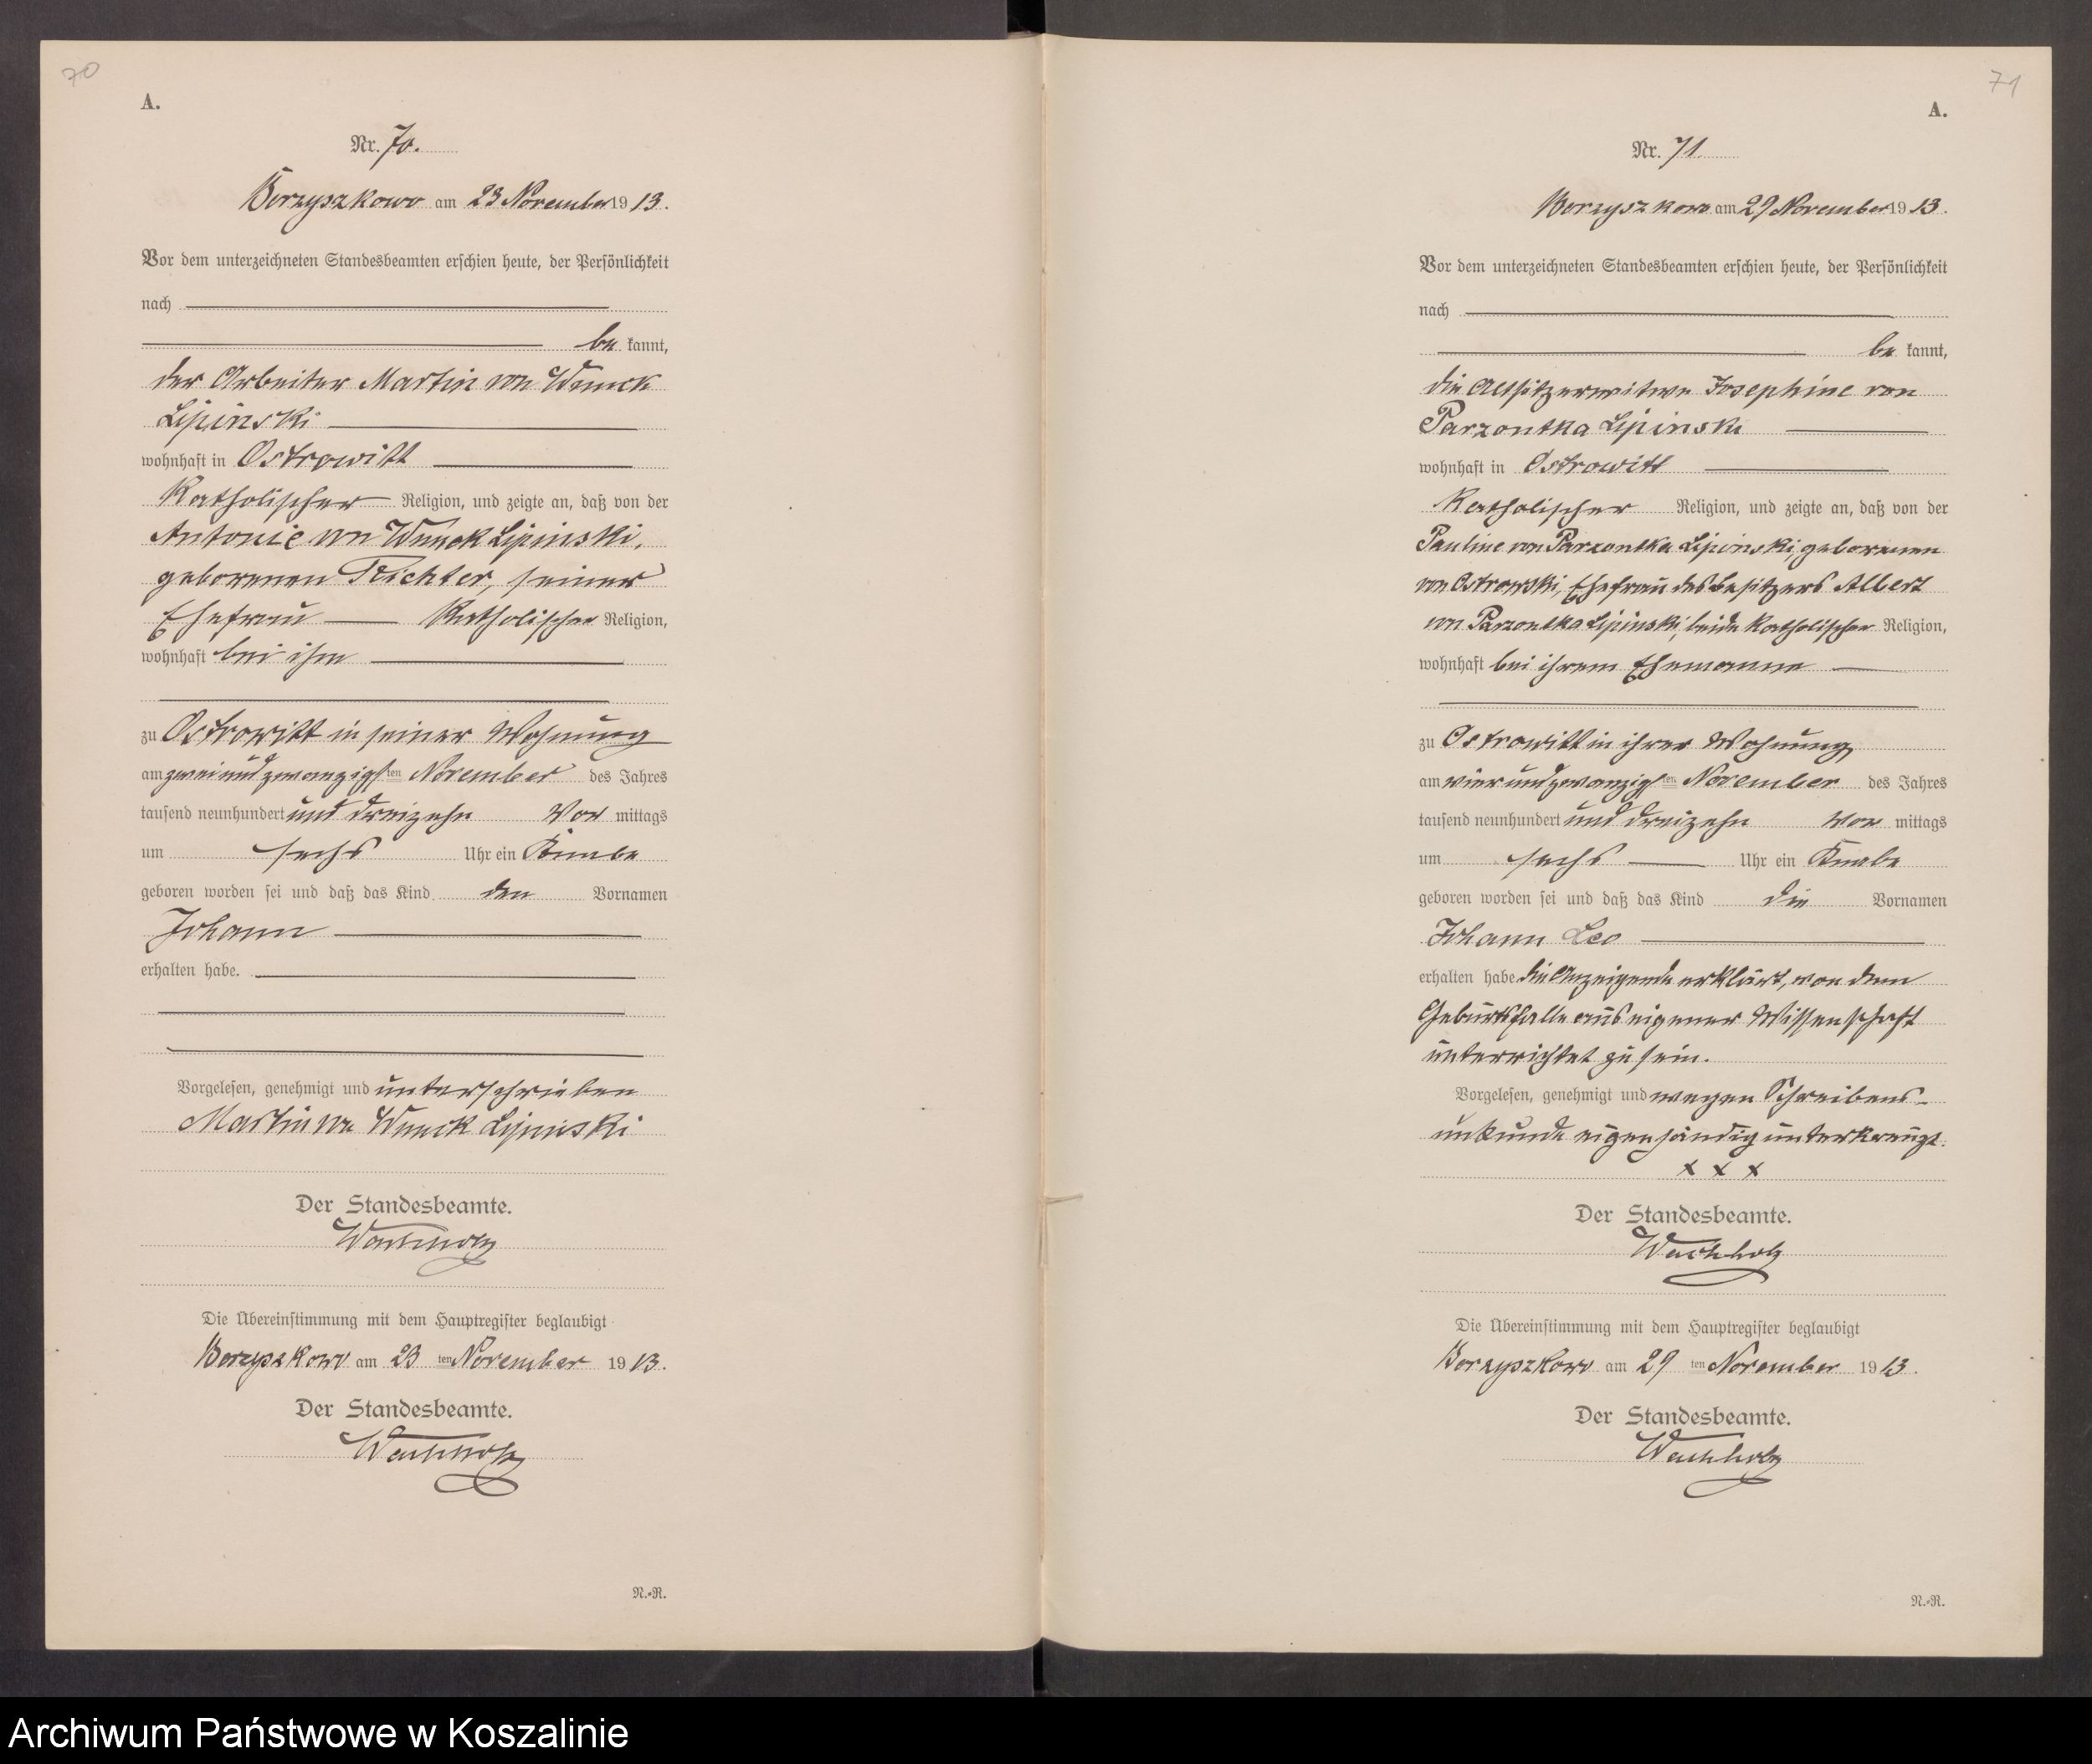 70
A.
Nr. 70.
Borzyszkowo am 23 November 1913.
Vor dem unterzeichneten Standesbeamten erschien heute, der Persönlichkeit
nach
be kannt,
der Arbeiter Martin von Wnuck
Lipinski
wohnhaft in Ostrowitt
Katholischer Religion, und zeigte an, daß von der
Antonie von Wnuck Lipinski,
geborenen Richter, seiner
Ehefrau Katholischer Religion,
wohnhaft bei ihm
zu Ostrowitt in seiner Wohnung
am zweiundzwanzigsten November des Jahres
tausend neunhundert und dreizehn Vor mittags
um sechs Uhr ein Knabe
geboren worden sei und daß das Kind den Vornamen
Johann
erhalten habe.
Vorgelesen, genehmigt und unterschrieben
Martin von Wnuck Lipinski
Der Standesbeamte.
Wachholz
Die Übereinstimmung mit dem Hauptregister beglaubigt
Borzyszkowo am 23 ten November 1913.
Der Standesbeamte.
Wachholz
N.-R.
71
A.
Nr. 71
Borzyszkowo am 29 November 1913.
Vor dem unterzeichneten Standesbeamten erschien heute, der Persönlichkeit
nach
be kannt,
die Altsitzerwitwe Josephine von
Parzontka Lipinski
wohnhaft in Ostrowitt
Katholischer Religion, und zeigte an, daß von der
Pauline von Parzontka Lipinski, geborenen
von Ostrowski, Ehefrau des Besitzers Albert
von Parzontka Lipinski, beide Katholischer Religion,
wohnhaft bei ihrem Ehemanne
zu Ostrowitt in ihrer Wohnung
am vierundzwanzigsten November des Jahres
tausend neunhundert und dreizehn Vor mittags
um sechs Uhr ein Knabe
geboren worden sei und daß das Kind die Vornamen
Johann Leo
erhalten habe die Anzeigende erklärt, von dem
Geburtsfalle aus eigener Wissenschaft
unterrichtet zu sein.
Vorgelesen, genehmigt und wegen Schreibens-
unkunde eigenhändig unterkreuzt.
x x x
Der Standesbeamte.
Wachholz
Die Übereinstimmung mit dem Hauptregister beglaubigt
Borzyszkowo am 29 ten November 1913.
Der Standesbeamte.
Wachholz
N.-R.
Archiwum Państwowe w Koszalinie